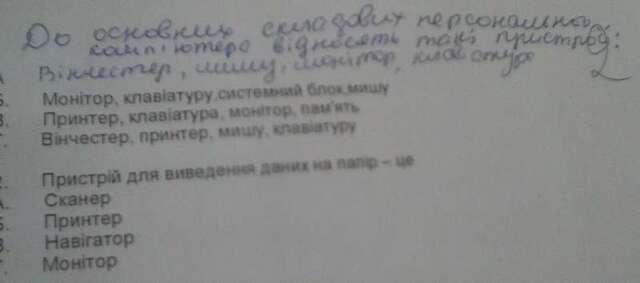 До основних складових персонального
комп'ютера відносять такі пристрої:
А Вінчестер, мишу, монітор, клавіатуру
Б. Монітор, клавіатуру,системний блок,мишу
В. Принтер, клавіатура, монітор, пам'ять
Г. Вінчестер, принтер, мишу, клавіатуру
2. Пристрій для виведення даних на папір – це
А. Сканер
Б. Принтер
В. Навігатор
Г. Монітор